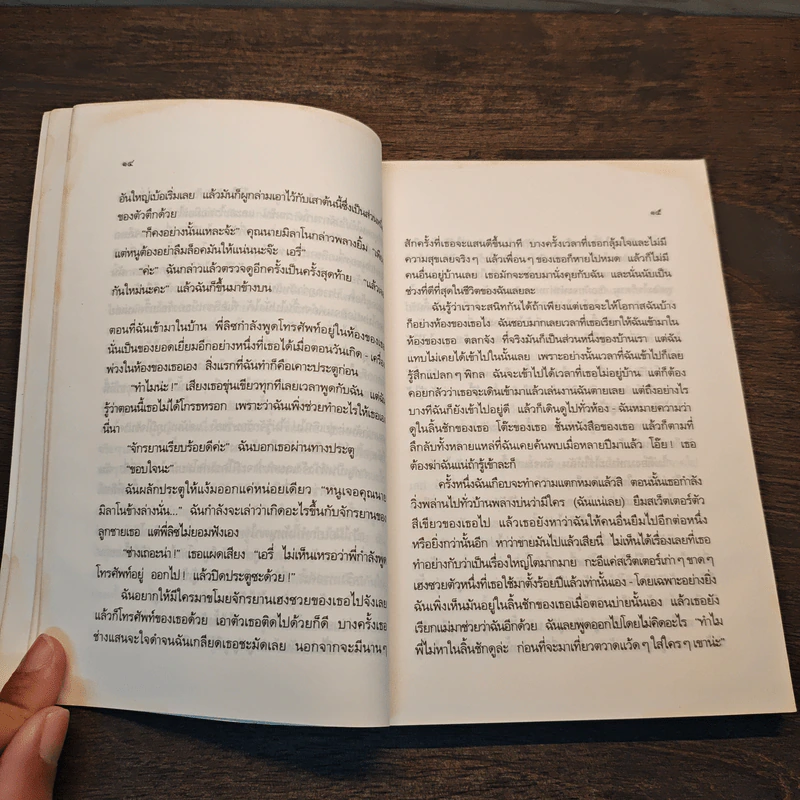 ๑๔
อันใหญ่เบ้อเริ่มเลย แล้วมันก็ผูกล่ามเอาไว้กับเสาต้นนี้ซึ่งเป็นส่วนหนึ่ง
ของตัวตึกด้วย
"ก็คงอย่างนั้นแหละจ้ะ" คุณนายมิลาโนกล่าวพลางยิ้ม
แต่หนูต้องอย่าลืมล็อคมันให้แน่นนะจ๊ะ เอรี่"
"ค่ะ" ฉันกล่าวแล้วตรวจดูอีกครั้งเป็นครั้งสุดท้าย "แล้วเจอ
กันใหม่นะคะ" แล้วฉันก็ขึ้นมาข้างบน
ตอนที่ฉันเข้ามาในบ้าน พี่ลิซกำลังพูดโทรศัพท์อยู่ในห้องของเธอ
นั่นเป็นของยอดเยี่ยมอีกอย่างหนึ่งที่เธอได้เมื่อตอนวันเกิด - เครื่อง
พ่วงในห้องของเธอเอง สิ่งแรกที่ฉันทำก็คือเคาะประตูก่อน
"ทำไมน่ะ!" เสียงเธอขุ่นเขียวทุกทีเลยเวลาพูดกับฉัน แต่ฉัน
รู้ว่าตอนนี้เธอไม่ได้โกรธหรอก เพราะว่าฉันเพิ่งช่วยทำอะไรให้เธอเอง
นี่นา
"จักรยานเรียบร้อยดีค่ะ" ฉันบอกเธอผ่านทางประตู
"ขอบใจนะ"
ฉันผลักประตูให้แง้มออกแค่หน่อยเดียว "หนูเจอคุณนาย
มิลาโนข้างล่างนั่น..." ฉันกำลังจะเล่าว่าเกิดอะไรขึ้นกับจักรยานของ
ลูกชายเธอ แต่พี่ลิซไม่ยอมฟังเอง
"ช่างเถอะน่า!" เธอแผดเสียง "เอรี่ ไม่เห็นเหรอว่าพี่กำลังพูด
โทรศัพท์อยู่ ออกไป! แล้วปิดประตูซะด้วย!"
ฉันอยากให้มีใครมาขโมยจักรยานเฮงซวยของเธอไปจังเลย
แล้วก็โทรศัพท์ของเธอด้วย เอาตัวเธอติดไปด้วยก็ดี บางครั้งเธอ
ช่างแสนจะใจดำจนฉันเกลียดเธอชะมัดเลย นอกจากจะมีนานๆ
๑๕
สักครั้งที่เธอจะแสนดีขึ้นมาที บางครั้งเวลาที่เธอกลุ้มใจและไม่มี
ความสุขเลยจริงๆ แล้วเพื่อนๆ ของเธอก็หายไปหมด แล้วก็ไม่มี
คนอื่นอยู่บ้านเลย เธอมักจะชอบมานั่งคุยกับฉัน และนั่นนับเป็น
ช่วงที่ดีที่สุดในชีวิตของฉันเลยละ
ฉันรู้ว่าเราจะสนิทกันได้ถ้าเพียงแต่เธอจะให้โอกาสฉันบ้าง
ก็อย่างห้องของเธอไง ฉันชอบมากเลยเวลาที่เธอเรียกให้ฉันเข้ามาใน
ห้องของเธอ ตลกจัง ที่จริงมันก็เป็นส่วนหนึ่งของบ้านเรา แต่ฉัน
แทบไม่เคยได้เข้าไปในนั้นเลย เพราะอย่างนั้นเวลาที่ฉันเข้าไปก็เลย
รู้สึกแปลกๆ พิกล ฉันจะเข้าไปได้เวลาที่เธอไม่อยู่บ้าน แต่ก็ต้อง
คอยกลัวว่าเธอจะเดินเข้ามาแล้วเล่นงานฉันตายเลย แต่ถึงอย่างไร
บางทีฉันก็ยังเข้าไปอยู่ดี แล้วก็เดินดูไปทั่วห้อง - ฉันหมายความว่า
ดูในลิ้นชักของเธอ โต๊ะของเธอ ชั้นหนังสือของเธอ แล้วก็ตามที่
ลึกลับทั้งหลายแหล่ที่ฉันเคยค้นพบเมื่อหลายปีมาแล้ว โอ๊ย! เธอ
ต้องฆ่าฉันแน่ถ้ารู้เข้าละก็
ครั้งหนึ่งฉันเกือบจะทำความแตกหมดแล้วสิ ตอนนั้นเธอกำลัง
วิ่งพล่านไปทั่วบ้านพลางบ่นว่ามีใคร (ฉันแน่เลย) ยืมสเว็ตเตอร์ตัว
สีเขียวของเธอไป แล้วเธอยังหาว่าฉันให้คนอื่นยืมไปอีกต่อหนึ่ง
หรือยิ่งกว่านั้นอีก หาว่าขายมันไปแล้วเสียนี่ ไม่เห็นได้เรื่องเลยที่เธอ
ทำอย่างกับว่าเป็นเรื่องใหญ่โตมากมาย กะอีแค่สเว็ตเตอร์เก่าๆ ขาดๆ
เฮงซวยตัวหนึ่งที่เธอใช้มาตั้งร้อยปีแล้วเท่านั้นเอง - โดยเฉพาะอย่างยิ่ง
ฉันเพิ่งเห็นมันอยู่ในลิ้นชักของเธอเมื่อตอนบ่ายนั้นเอง แล้วเธอยัง
เรียกแม่มาช่วยว่าฉันอีกด้วย ฉันเลยพูดออกไปโดยไม่คิดอะไร "ทำไม
พี่ไม่หาในลิ้นชักดูล่ะ ก่อนที่จะมาเที่ยวตวาดแว้ดๆ ใส่ใครๆ เขาน่ะ"